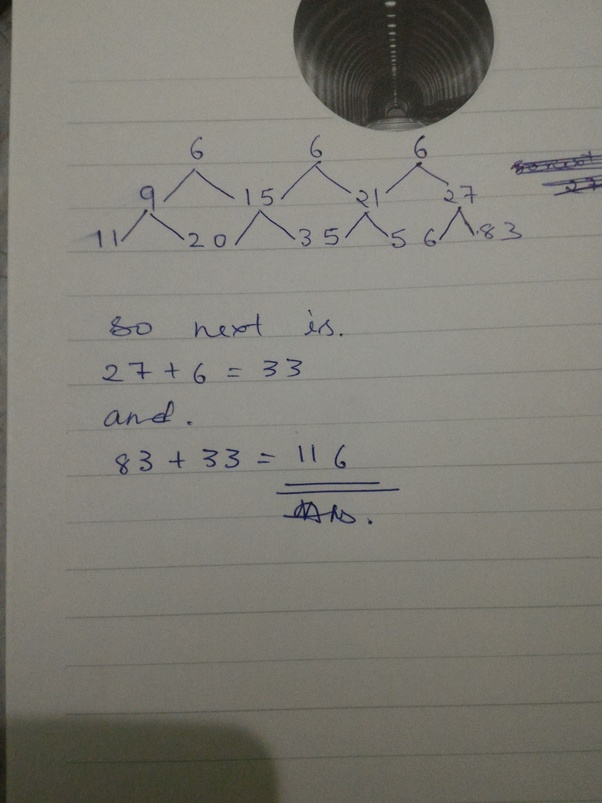 6 6 6
9 15 21 27
11 20 35 56 83
so next is.
27 + 6 = 33
and.
83 + 33 = 116
Ans.